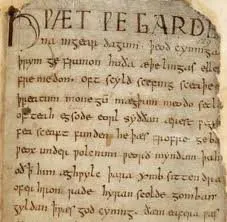 HǷÆT ǷE GARDE
na ingear dagum. þeod cyninga
þrym ge frunon huða æþelingas elle
fre medon. oft scyld scefing sceaþe
þreatum monegū mægþum meodo setla
of teah egsode eorl syððan ærest ƿea
fea sceaft funden he þæs frofre ge ba
ƿeox under ƿolcnum ƿeorð myndum þah
oð ꝥ him æghƿylc þara ymb sittendra
ofer hron rade hyran scolde gomban
gyldan ꝥ ƿæs god cyning. ðæm eafera ƿæs